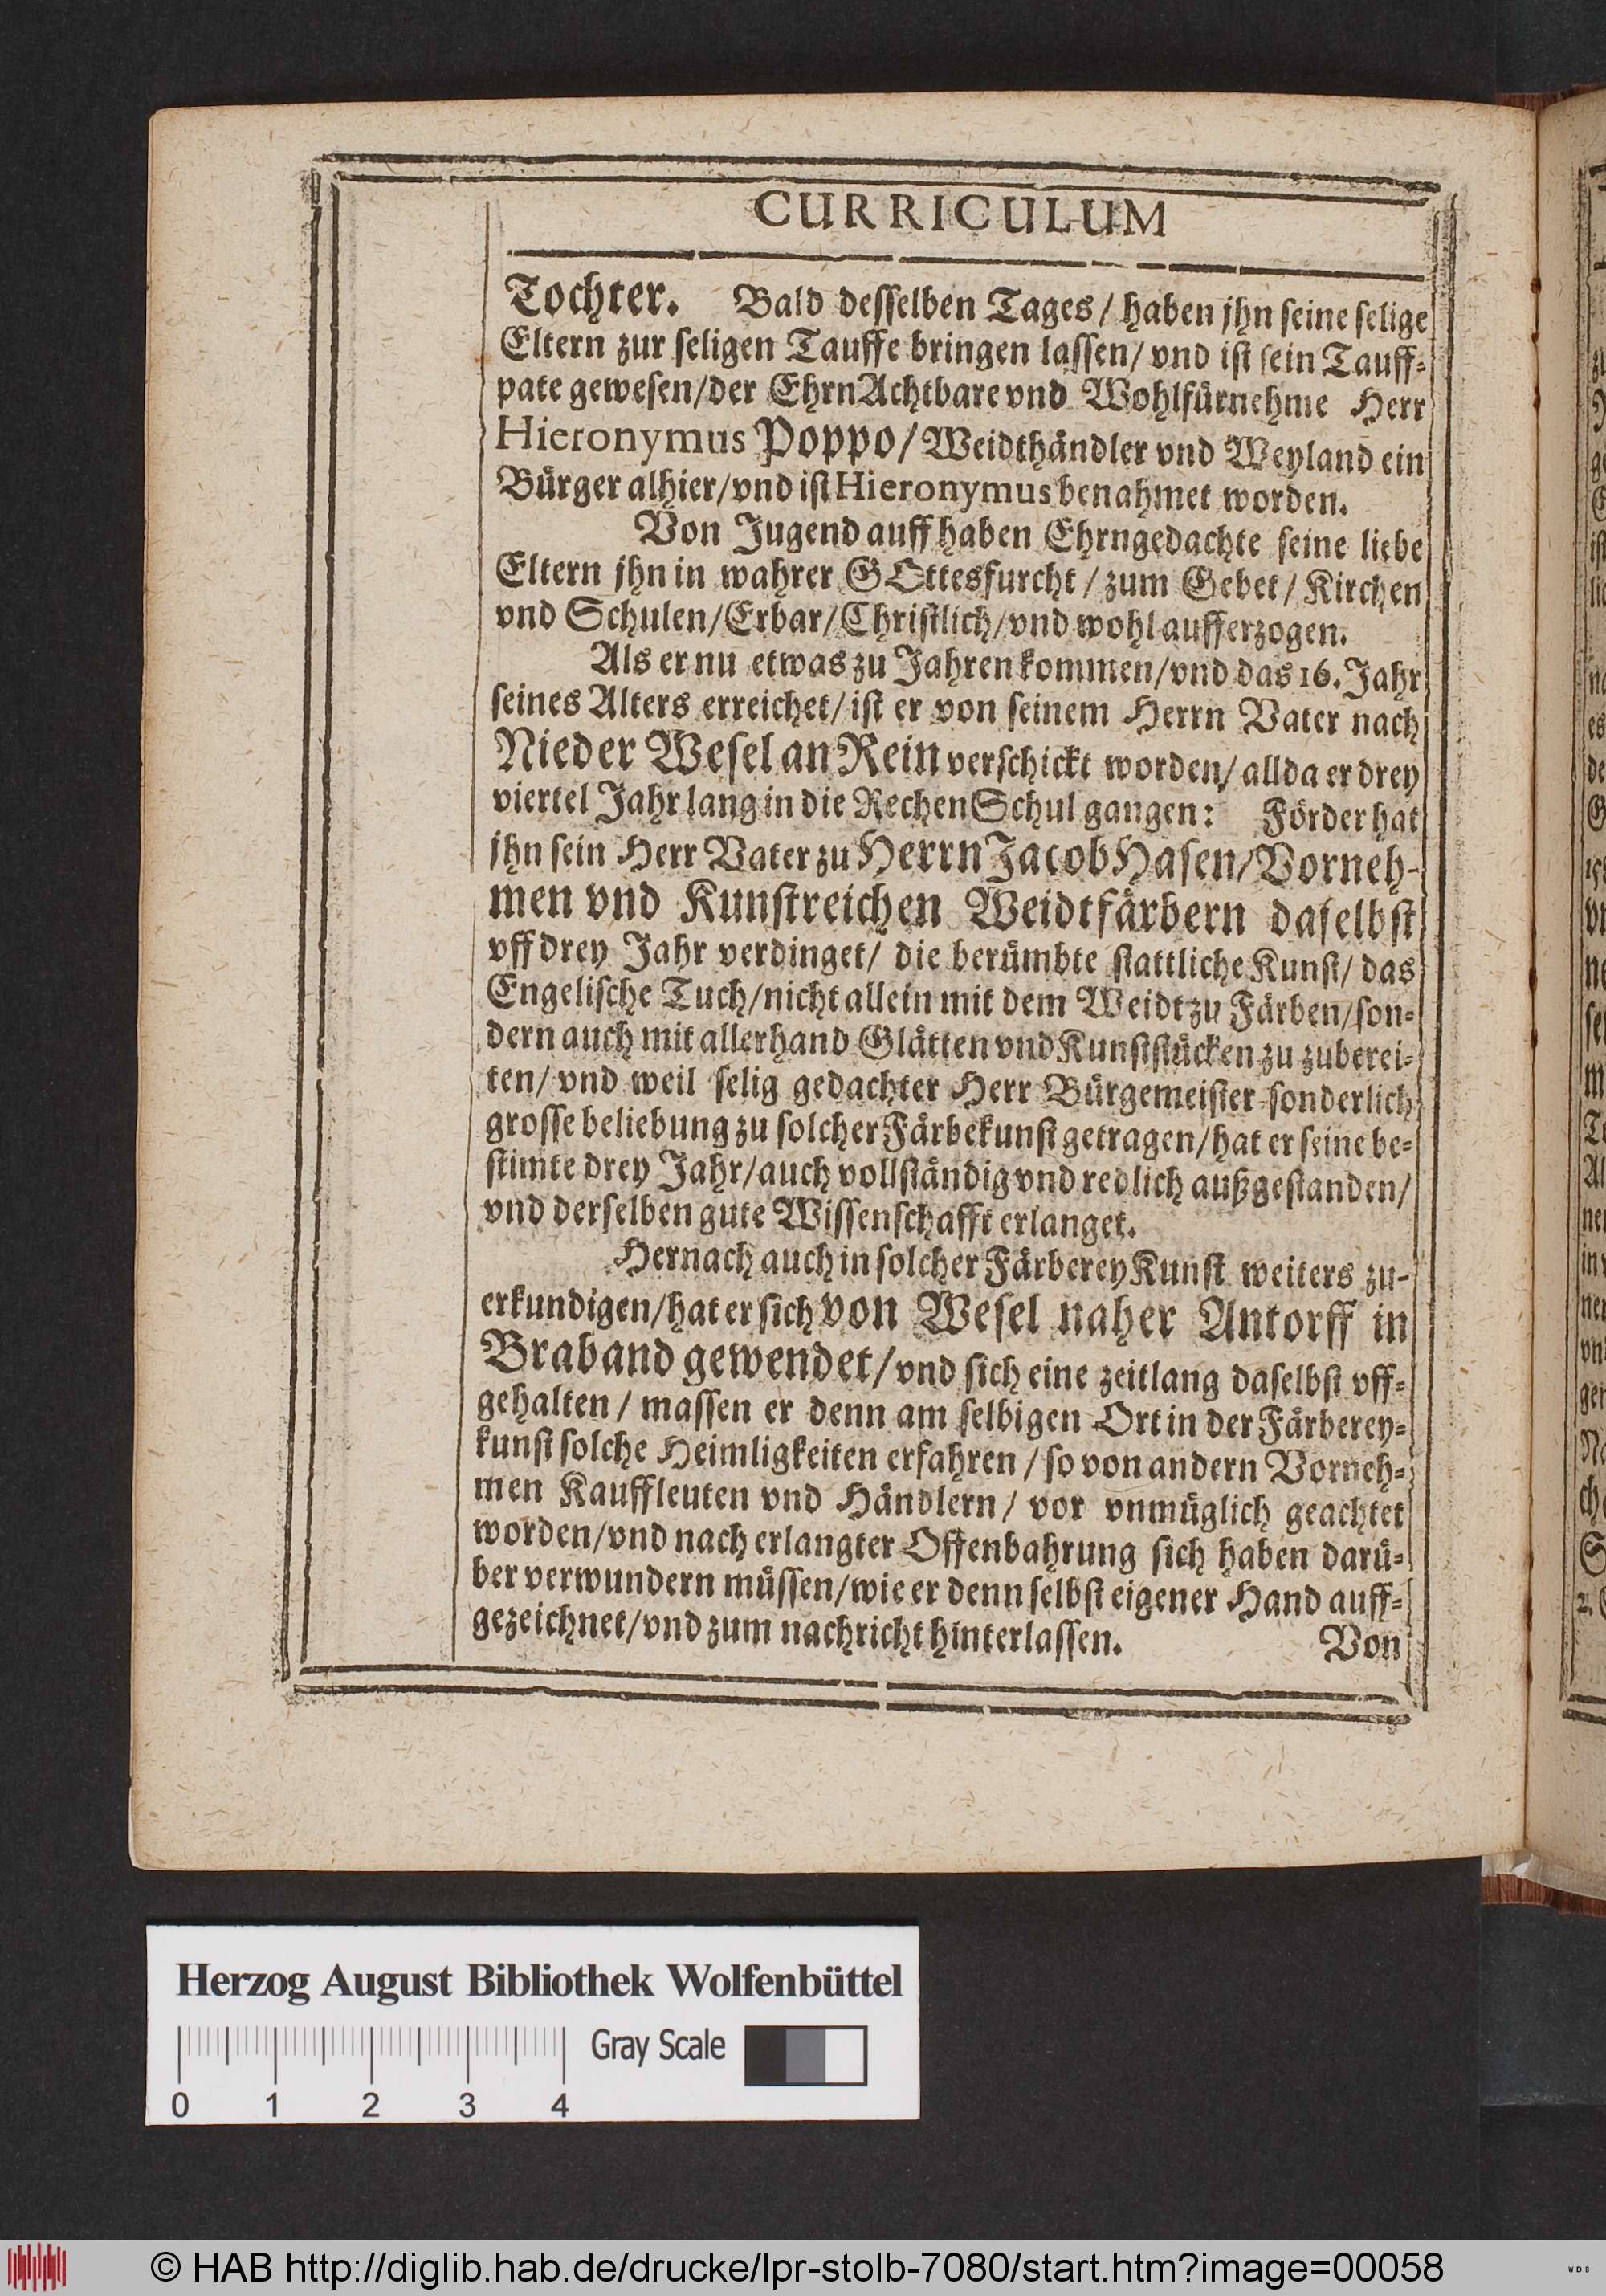 CURRICULUM
Tochter. Bald desselben Tages / haben jhn seine selige
Eltern zur seligen Tauffe bringen lassen/ vnd ist sein Tauff-
pate gewesen/der EhrnAchtbare vnd Wohlfürnehme Herr
Hieronymus Poppo/ Weidthändler vnd Weyland ein
Bürger alhier/vnd ist Hieronymus benahmet worden.
Von Jugend auff haben Ehrngedachte seine liebe
Eltern jhn in wahrer GOttesfurcht / zum Gebet / Kirchen
vnd Schulen/Erbar/Christlich/vnd wohl aufferzogen.
Als er nu etwas zu Jahren kommen/vnd das 16. Jahr
seines Alters erreichet/ ist er von seinem Herrn Vater nach
Nieder Wesel an Rein verschickt worden/ allda er drey
viertel Jahr lang in die RechenSchul gangen: Förder hat
jhn sein Herr Vater zu Herrn Jacob Hasen/Vorneh-
men vnd Kunstreichen Weidtfärbern daselbst
vff drey Jahr verdinget/ die berümbte stattliche Kunst/ das
Engelische Tuch/nicht allein mit dem Weidt zu Färben/son-
dern auch mit allerhand Glätten vnd Kunststücken zu zuberei-
ten/ vnd weil selig gedachter Herr Bürgemeister sonderlich
grosse beliebung zu solcher Färbekunst getragen/hat er seine be-
stimte drey Jahr/auch vollständig vnd redlich außgestanden/
vnd derselben gute Wissenschafft erlanget.
Hernach auch in solcher Färberey Kunst weiters zu-
erkundigen/hat er sich von Wesel naher Antorff in
Braband gewendet/vnd sich eine zeitlang daselbst vff-
gehalten / massen er denn am selbigen Ort in der Färberey-
kunst solche Heimligkeiten erfahren / so von andern Vorneh-
men Kauffleuten vnd Händlern/ vor vnmüglich geachtet
worden/vnd nach erlangter Offenbahrung sich haben darü-
ber verwundern müssen/wie er denn selbst eigener Hand auff-
gezeichnet/vnd zum nachricht hinterlassen.
Von
Herzog August Bibliothek Wolfenbüttel
Gray Scale
0 1 2 3 4
© HAB http://diglib.hab.de/drucke/lpr-stolb-7080/start.htm?image=00058